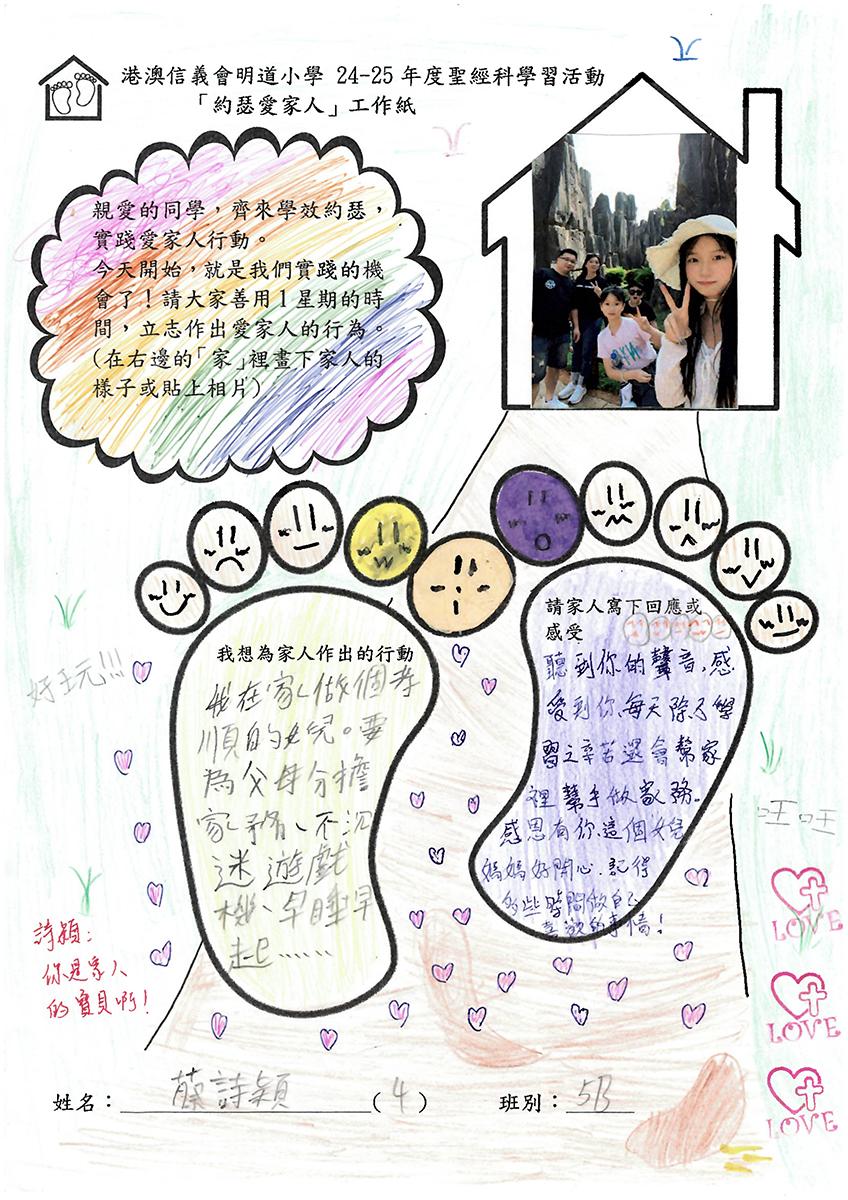 港澳信義會明道小學 24-25 年度聖經科學習活動
「約瑟愛家人」工作紙
親愛的同學，齊來學效約瑟，
實踐愛家人行動。
今天開始，就是我們實踐的機
會了！請大家善用1星期的時
間，立志作出愛家人的行為。
(在右邊的「家」裡畫下家人的
樣子或貼上相片)
我想為家人作出的行動
我在家做個孝
順的女兒。要
為父母分擔
家務、不沉
迷遊戲
機、早睡早
起……
請家人寫下回應或
感受
聽到你的聲音，感
受到你每天除了學
習之辛苦還會幫家
裡幫手做家務。
感恩有你這個女兒
媽媽好開心.記得
多些時間做自己
喜歡的事情！
好玩!!!
汪汪
詩穎：
你是家人
的寶貝啊！
LOVE
LOVE
LOVE
姓名：蔡詩穎(4) 班別：5B